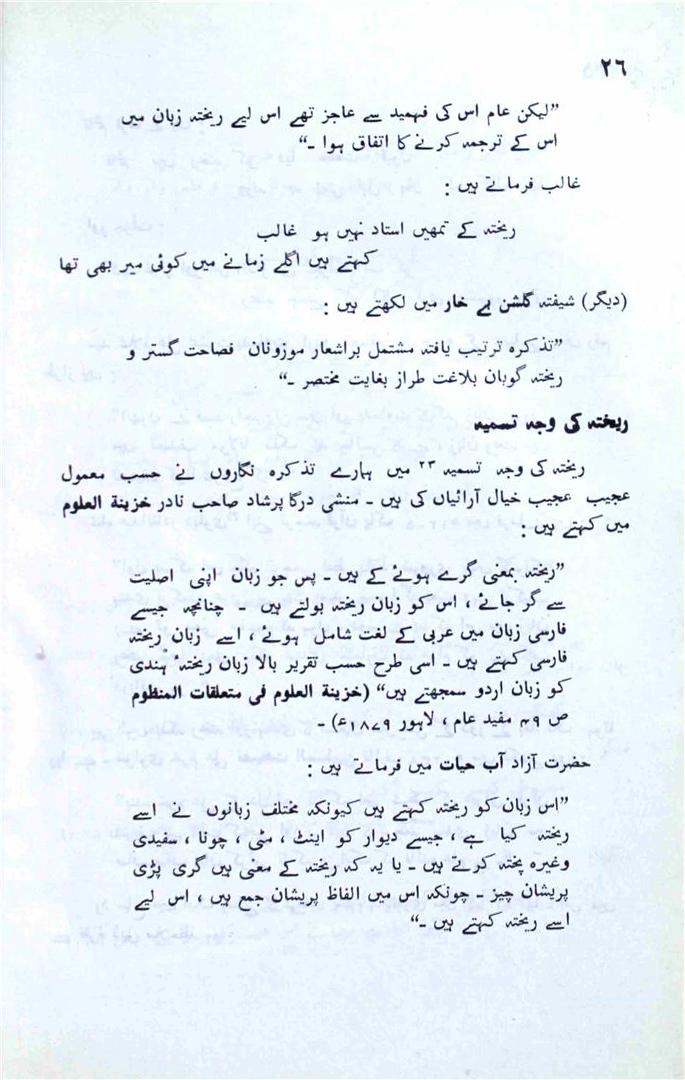 ۲٦
”لیکن عام اس کی فہمید سے عاجز تھے اس لیے ریختہ زبان میں
اس کے ترجمہ کرنے کا اتفاق ہوا ۔“
غالب فرماتے ہیں :
ریختہ کے تمھیں استاد نہیں ہو غالب
کہتے ہیں اگلے زمانے میں کوئی میر بھی تھا
(دیگر) شیفتہ گلشن بے خار میں لکھتے ہیں :
”تذکرہ ترتیب یافتہ مشتمل براشعار موزونان فصاحت گستر و
ریختہ گویان بلاغت طراز بغایت مختصر ۔“
ریختہ کی وجہ تسمیہ
ریختہ کی وجہ تسمیہ ۲۳ میں ہمارے تذکرہ نگاروں نے حسب معمول
عجیب عجیب خیال آرائیاں کی ہیں ۔ منشی درگا پرشاد صاحب نادر خزینة العلوم
میں کہتے ہیں :
”ریختہ بمعنی گرے ہوئے کے ہیں ۔ پس جو زبان اپنی اصلیت
سے گر جائے ، اس کو زبان ریختہ بولتے ہیں ۔ چنانچہ جیسے
فارسی زبان میں عربی کے لغت شامل ہوئے ، اسے زبان ریختہ
فارسی کہتے ہیں ۔ اسی طرح حسب تقریر بالا زبان ریختۂ ہندی
کو زبان اردو سمجھتے ہیں“ (خزینة العلوم فی متعلقات المنظوم
ص ۴۹ مفید عام ، لاہور ۱۸۷۹ع) ۔
حضرت آزاد آب حیات میں فرماتے ہیں :
”اس زبان کو ریختہ کہتے ہیں کیونکہ مختلف زبانوں نے اسے
ریختہ کیا ہے ، جیسے دیوار کو اینٹ ، مٹی ، چونا ، سفیدی
وغیرہ پختہ کرتے ہیں ۔ یا یہ کہ ریختہ کے معنی ہیں گری پڑی
پریشان چیز ۔ چونکہ اس میں الفاظ پریشان جمع ہیں ، اس لیے
اسے ریختہ کہتے ہیں ۔“